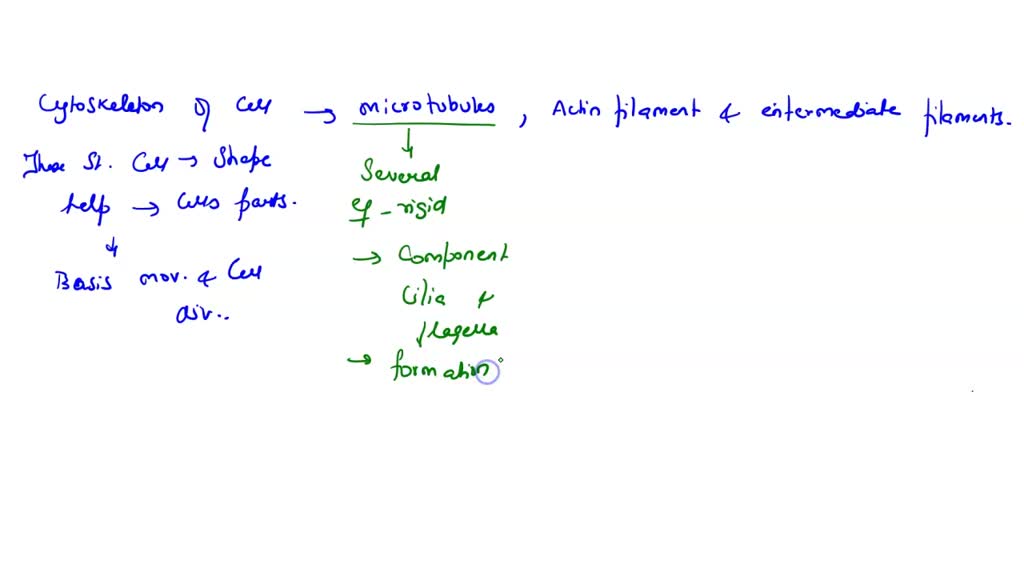 Cytoskeleton of Cell → microtubules, Actin filament & intermediate filaments.
These St. Cell → Shape
help → Cells parts.
↓
Basis mov. & Cell
div..
↓
Several
ef - rigid
→ Component
Cilia &
flagella
→ formation